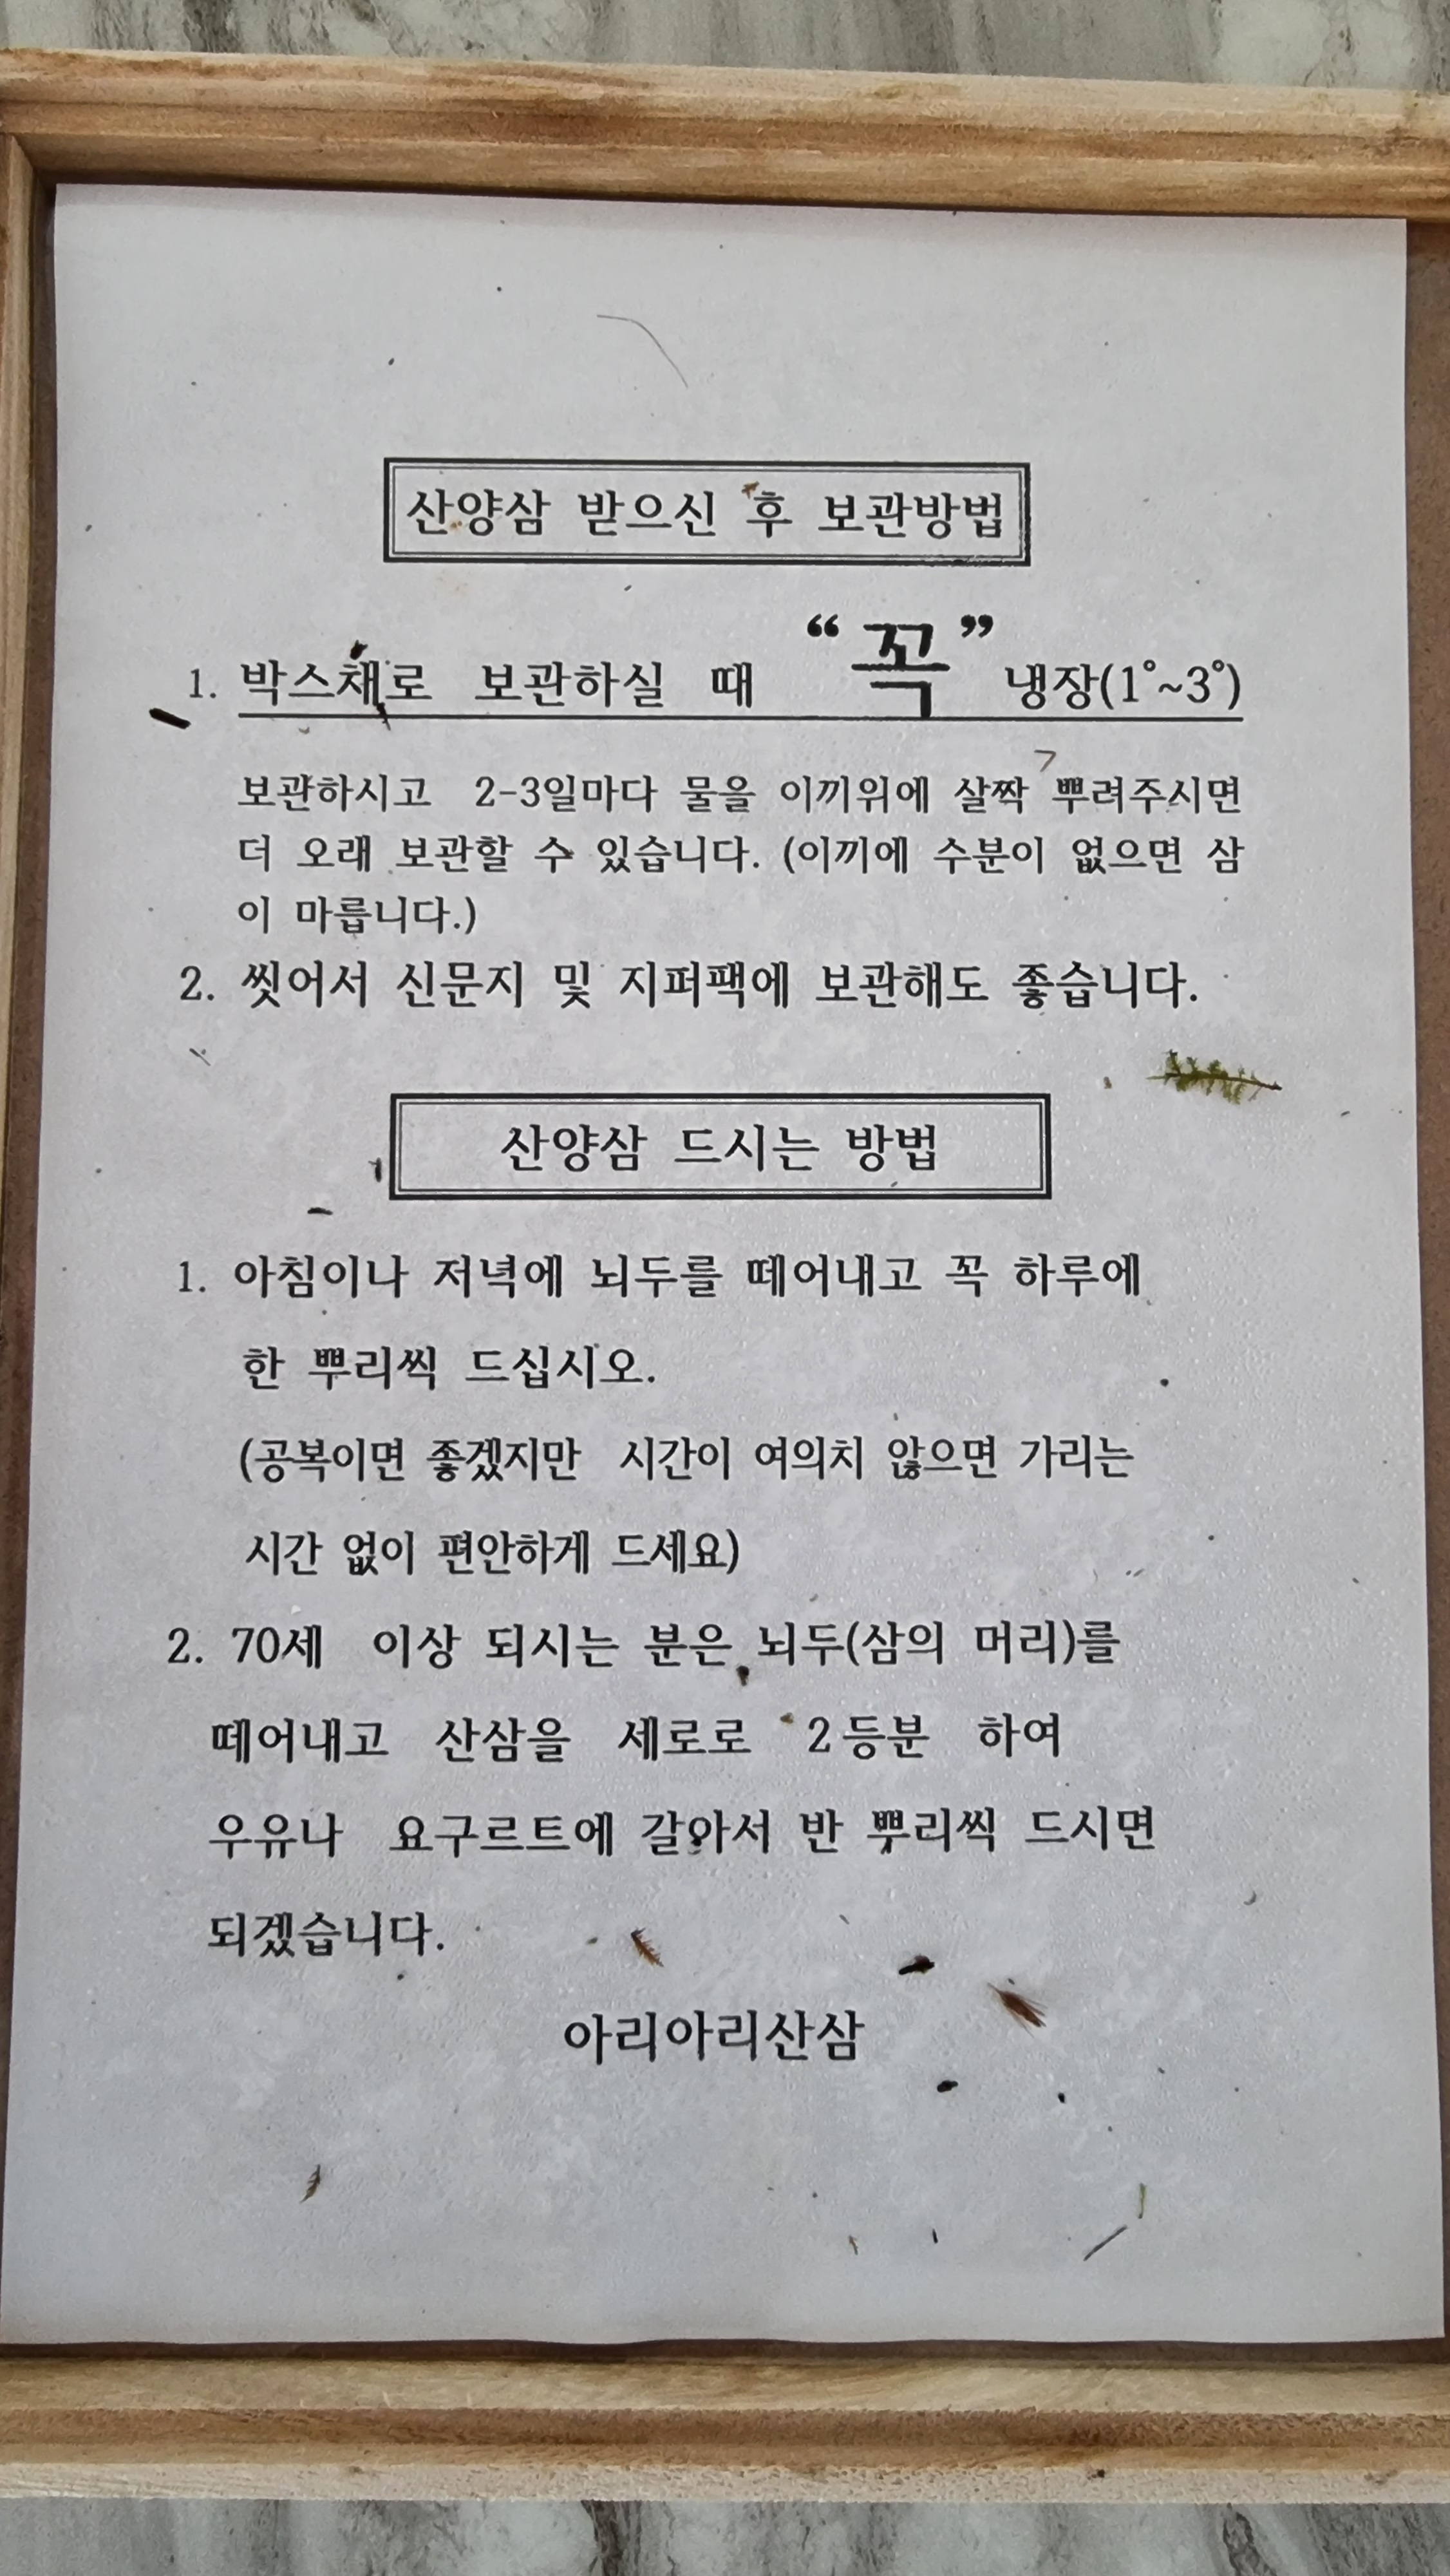 산양삼 받으신 후 보관방법
1. 박스채로 보관하실 때 “꼭” 냉장(1°~3°)
보관하시고 2-3일마다 물을 이끼위에 살짝 뿌려주시면
더 오래 보관할 수 있습니다. (이끼에 수분이 없으면 삼
이 마릅니다.)
2. 씻어서 신문지 및 지퍼팩에 보관해도 좋습니다.
산양삼 드시는 방법
1. 아침이나 저녁에 뇌두를 떼어내고 꼭 하루에
한 뿌리씩 드십시오.
(공복이면 좋겠지만 시간이 여의치 않으면 가리는
시간 없이 편안하게 드세요)
2. 70세 이상 되시는 분은 뇌두(삼의 머리)를
떼어내고 산삼을 세로로 2등분 하여
우유나 요구르트에 갈아서 반 뿌리씩 드시면
되겠습니다.
아리아리산삼